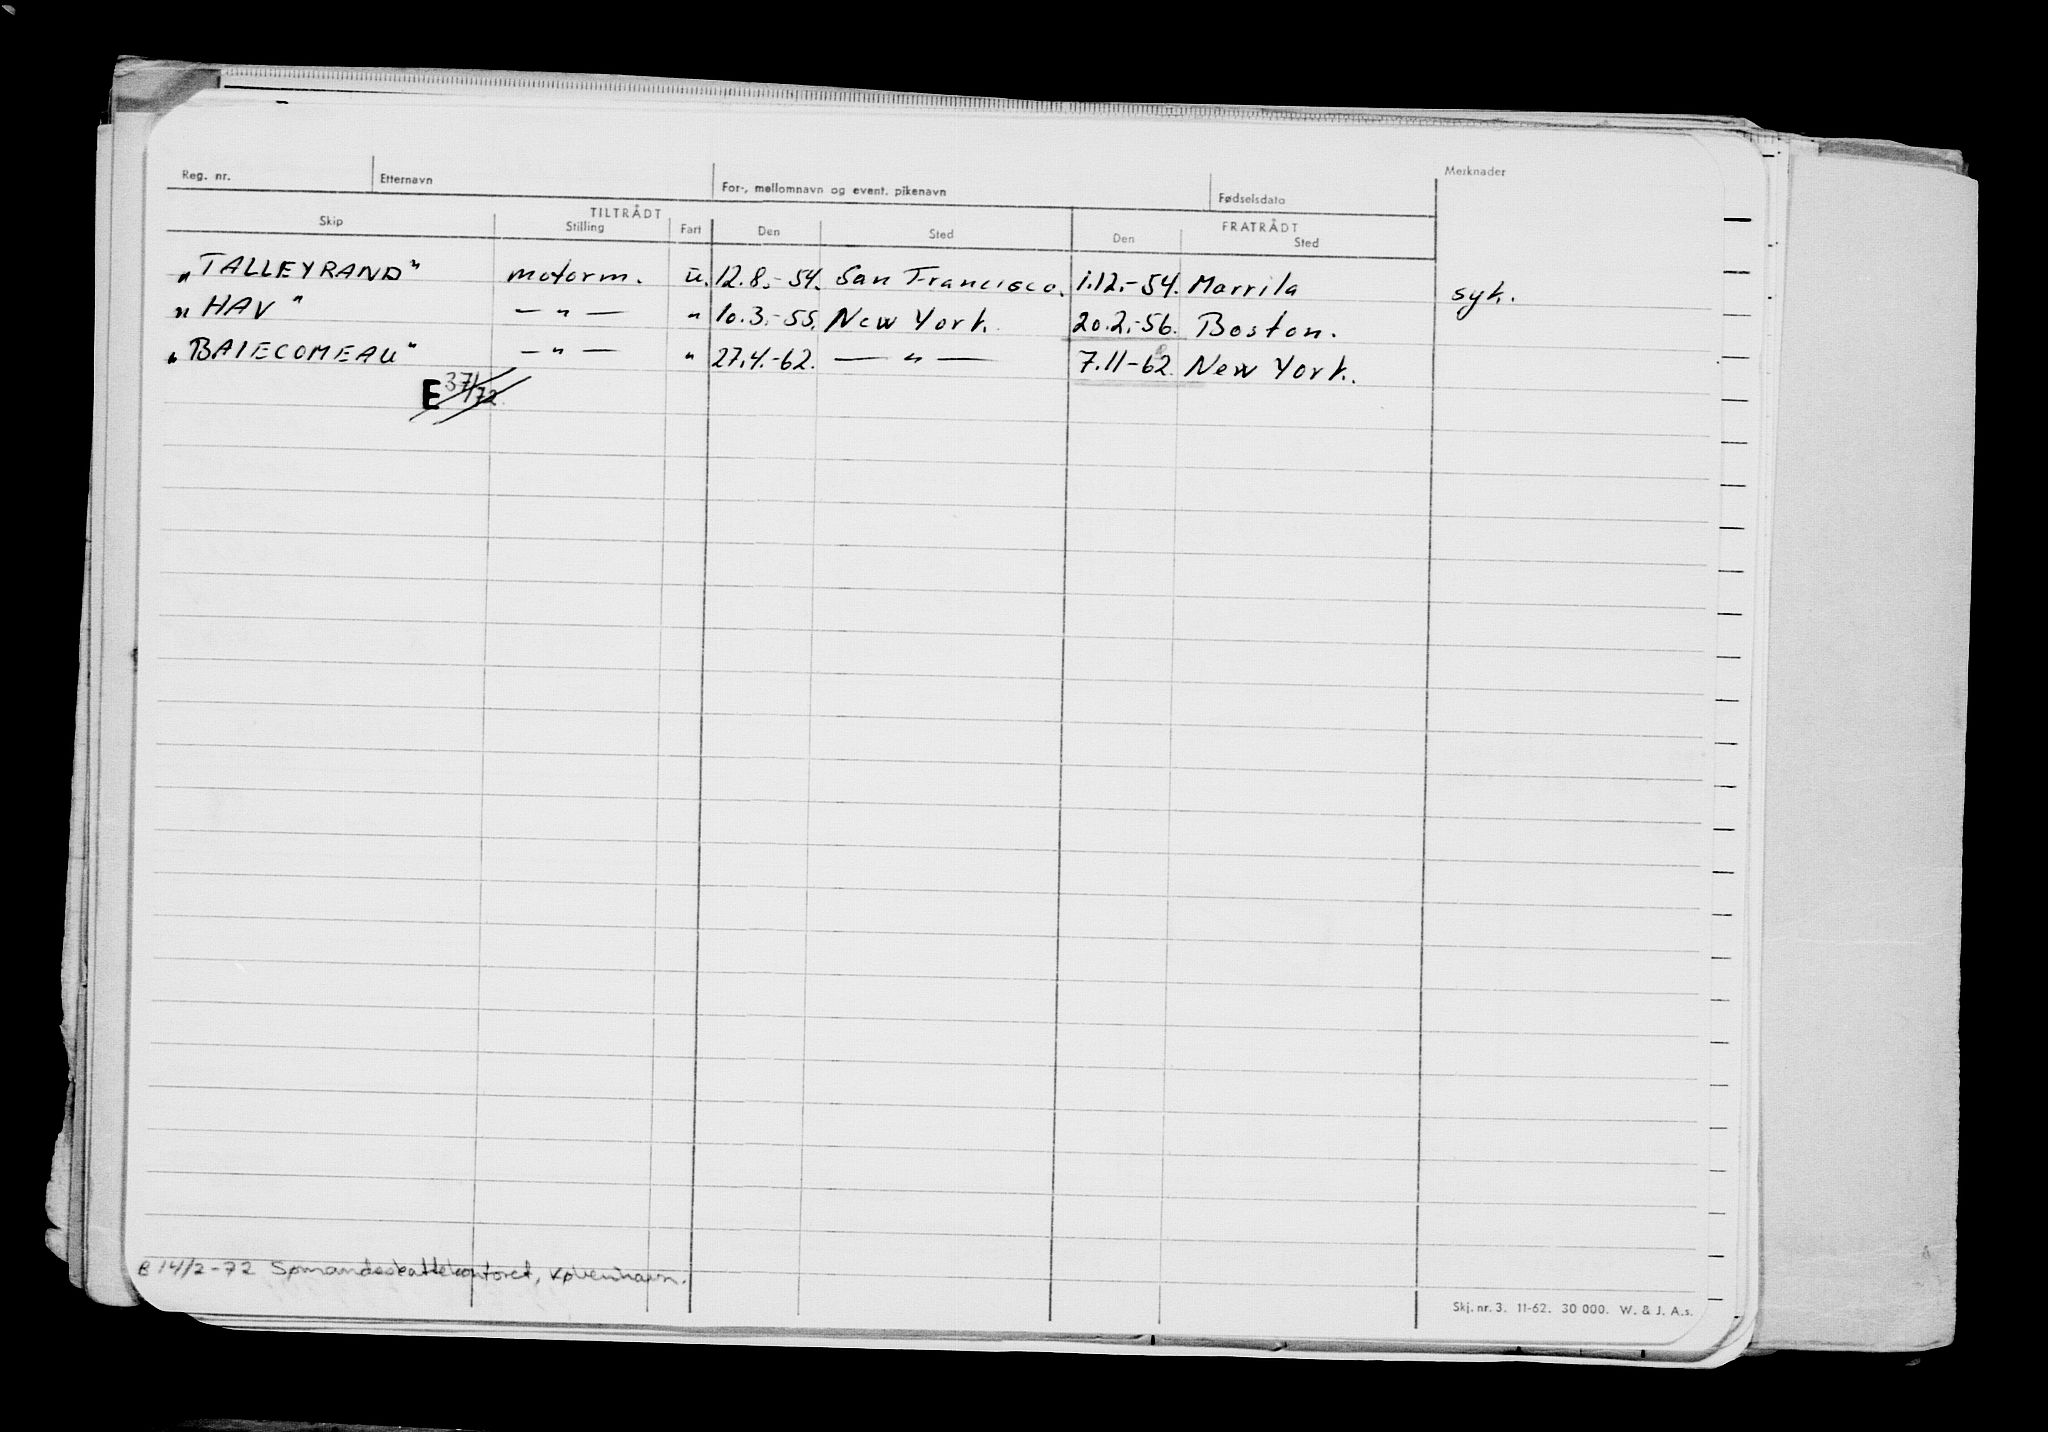 Reg. nr. Etternavn For-, mellomnavn og event. pikenavn Fødselsdato Merknader
TILTRÅDT FRATRÅDT
Skip Stilling Fart Den Sted Den Sted
„TALLEYRAND" motorm. u. 12.8.-54. San Francisco. 1.12.-54. Marrila syk.
"HAV" — " — " 10.3.-55. New York. 20.2.-56. Boston.
„BAIECOMEAU" — " — " 27.4.-62. — " — 7.11-62. New York.
E 37/72
B 14/2-72 Sømandsskattekontoret, København.
Skj. nr. 3. 11-62. 30 000. W. & J. A.s.